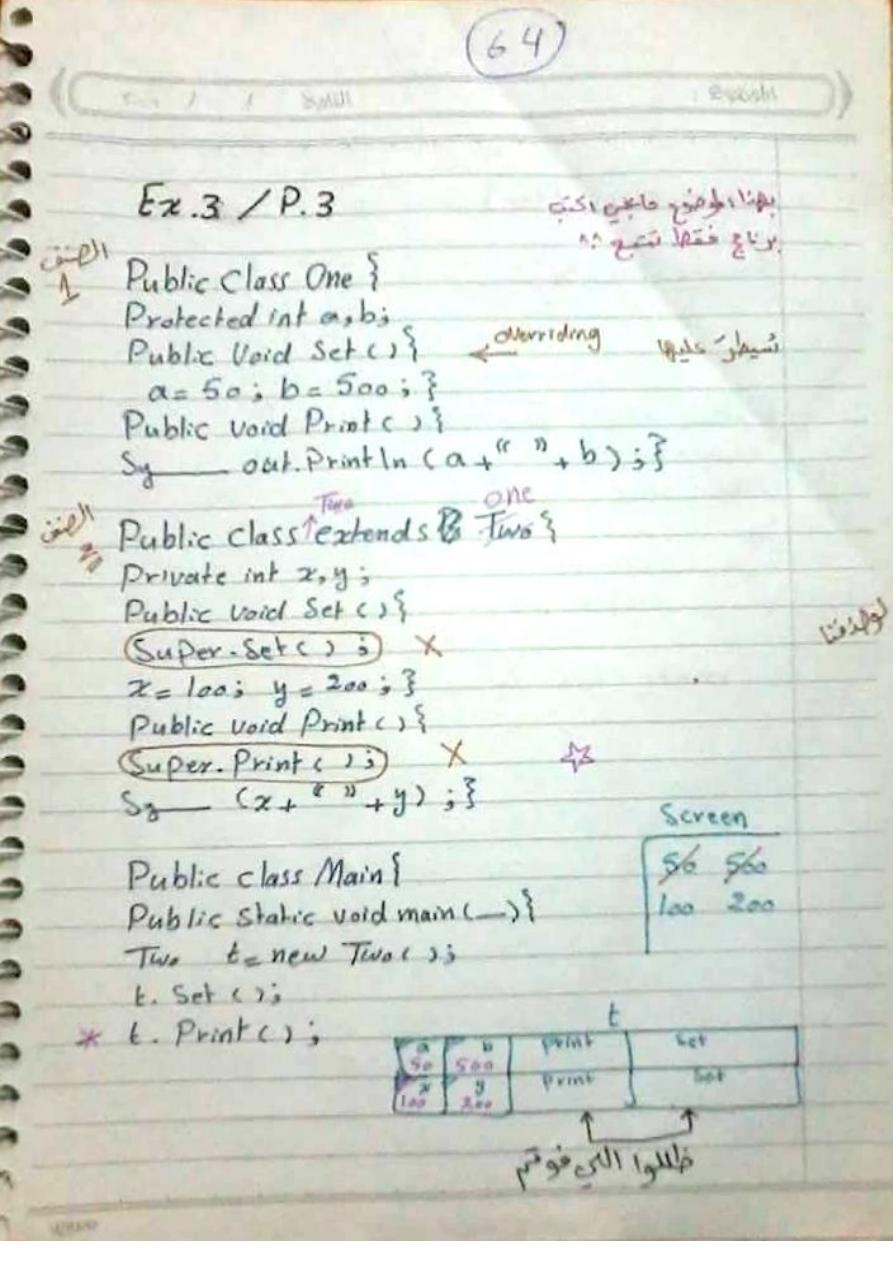 64
Ex.3 / P.3
بهذا الموضوع مايجي اكتب
برنامج فقط تتبع ^^
الصنف
1
Public Class One {
Protected int a,b;
Public Void Set() {
overriding
عليها
a=50; b=500; }
Public void Print() {
Sy___ out.Println (a+" "+b); }
الصنف
Public class Two extends Two one {
Private int x,y;
Public void Set() {
Super.Set(); X
x=100; y=200; }
Public void Print() {
Super.Print(); X
Sy___ (x+" "+y); }
Screen
50 500
100 200
Public class Main {
Public Static void main(—) {
Two t=new Two();
t.Set();
* t.Print();
t
a b Print Set
50 500
x y Print Set
100 200
ظللوا اللي فوقهم